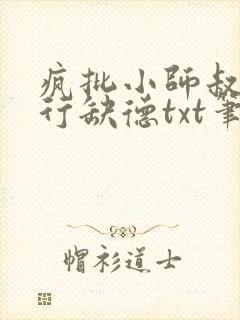 疯批小師叔
行缺德txt筆
帽衫道士